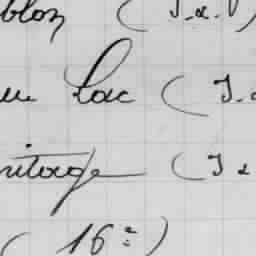 blon (J.a.V)
au Lac (J.
ritage (J a
(16=)